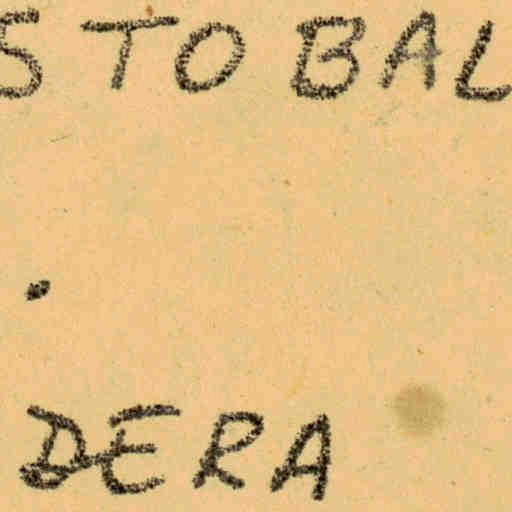 STOBAL
.
DERA